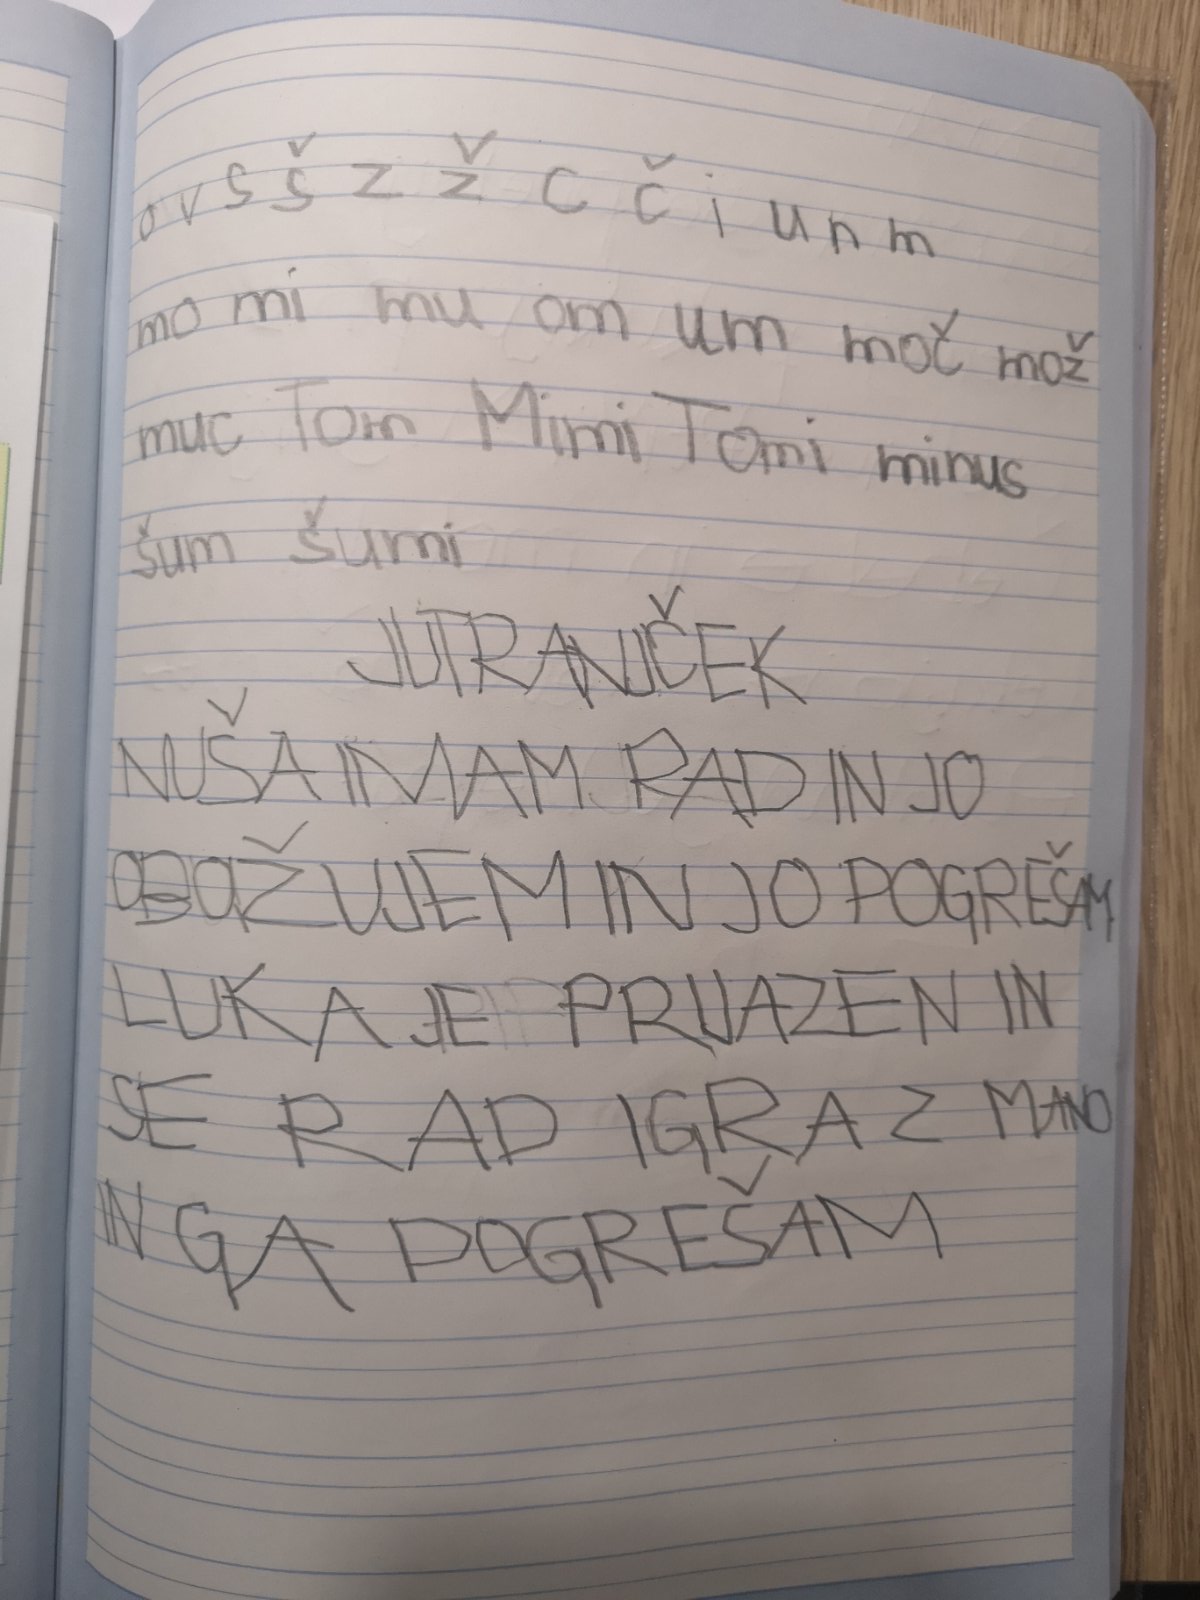 o v s š z ž c č i u n m
mo mi mu om um moč mož
muc Tom Mimi Tomi minus
šum šumi
JUTRANJČEK
NUŠA IMAM RAD IN JO
OBOŽUJEM IN JO POGREŠAM
LUKA JE PRIJAZEN IN
SE RAD IGRA Z MANO
IN GA POGREŠAM